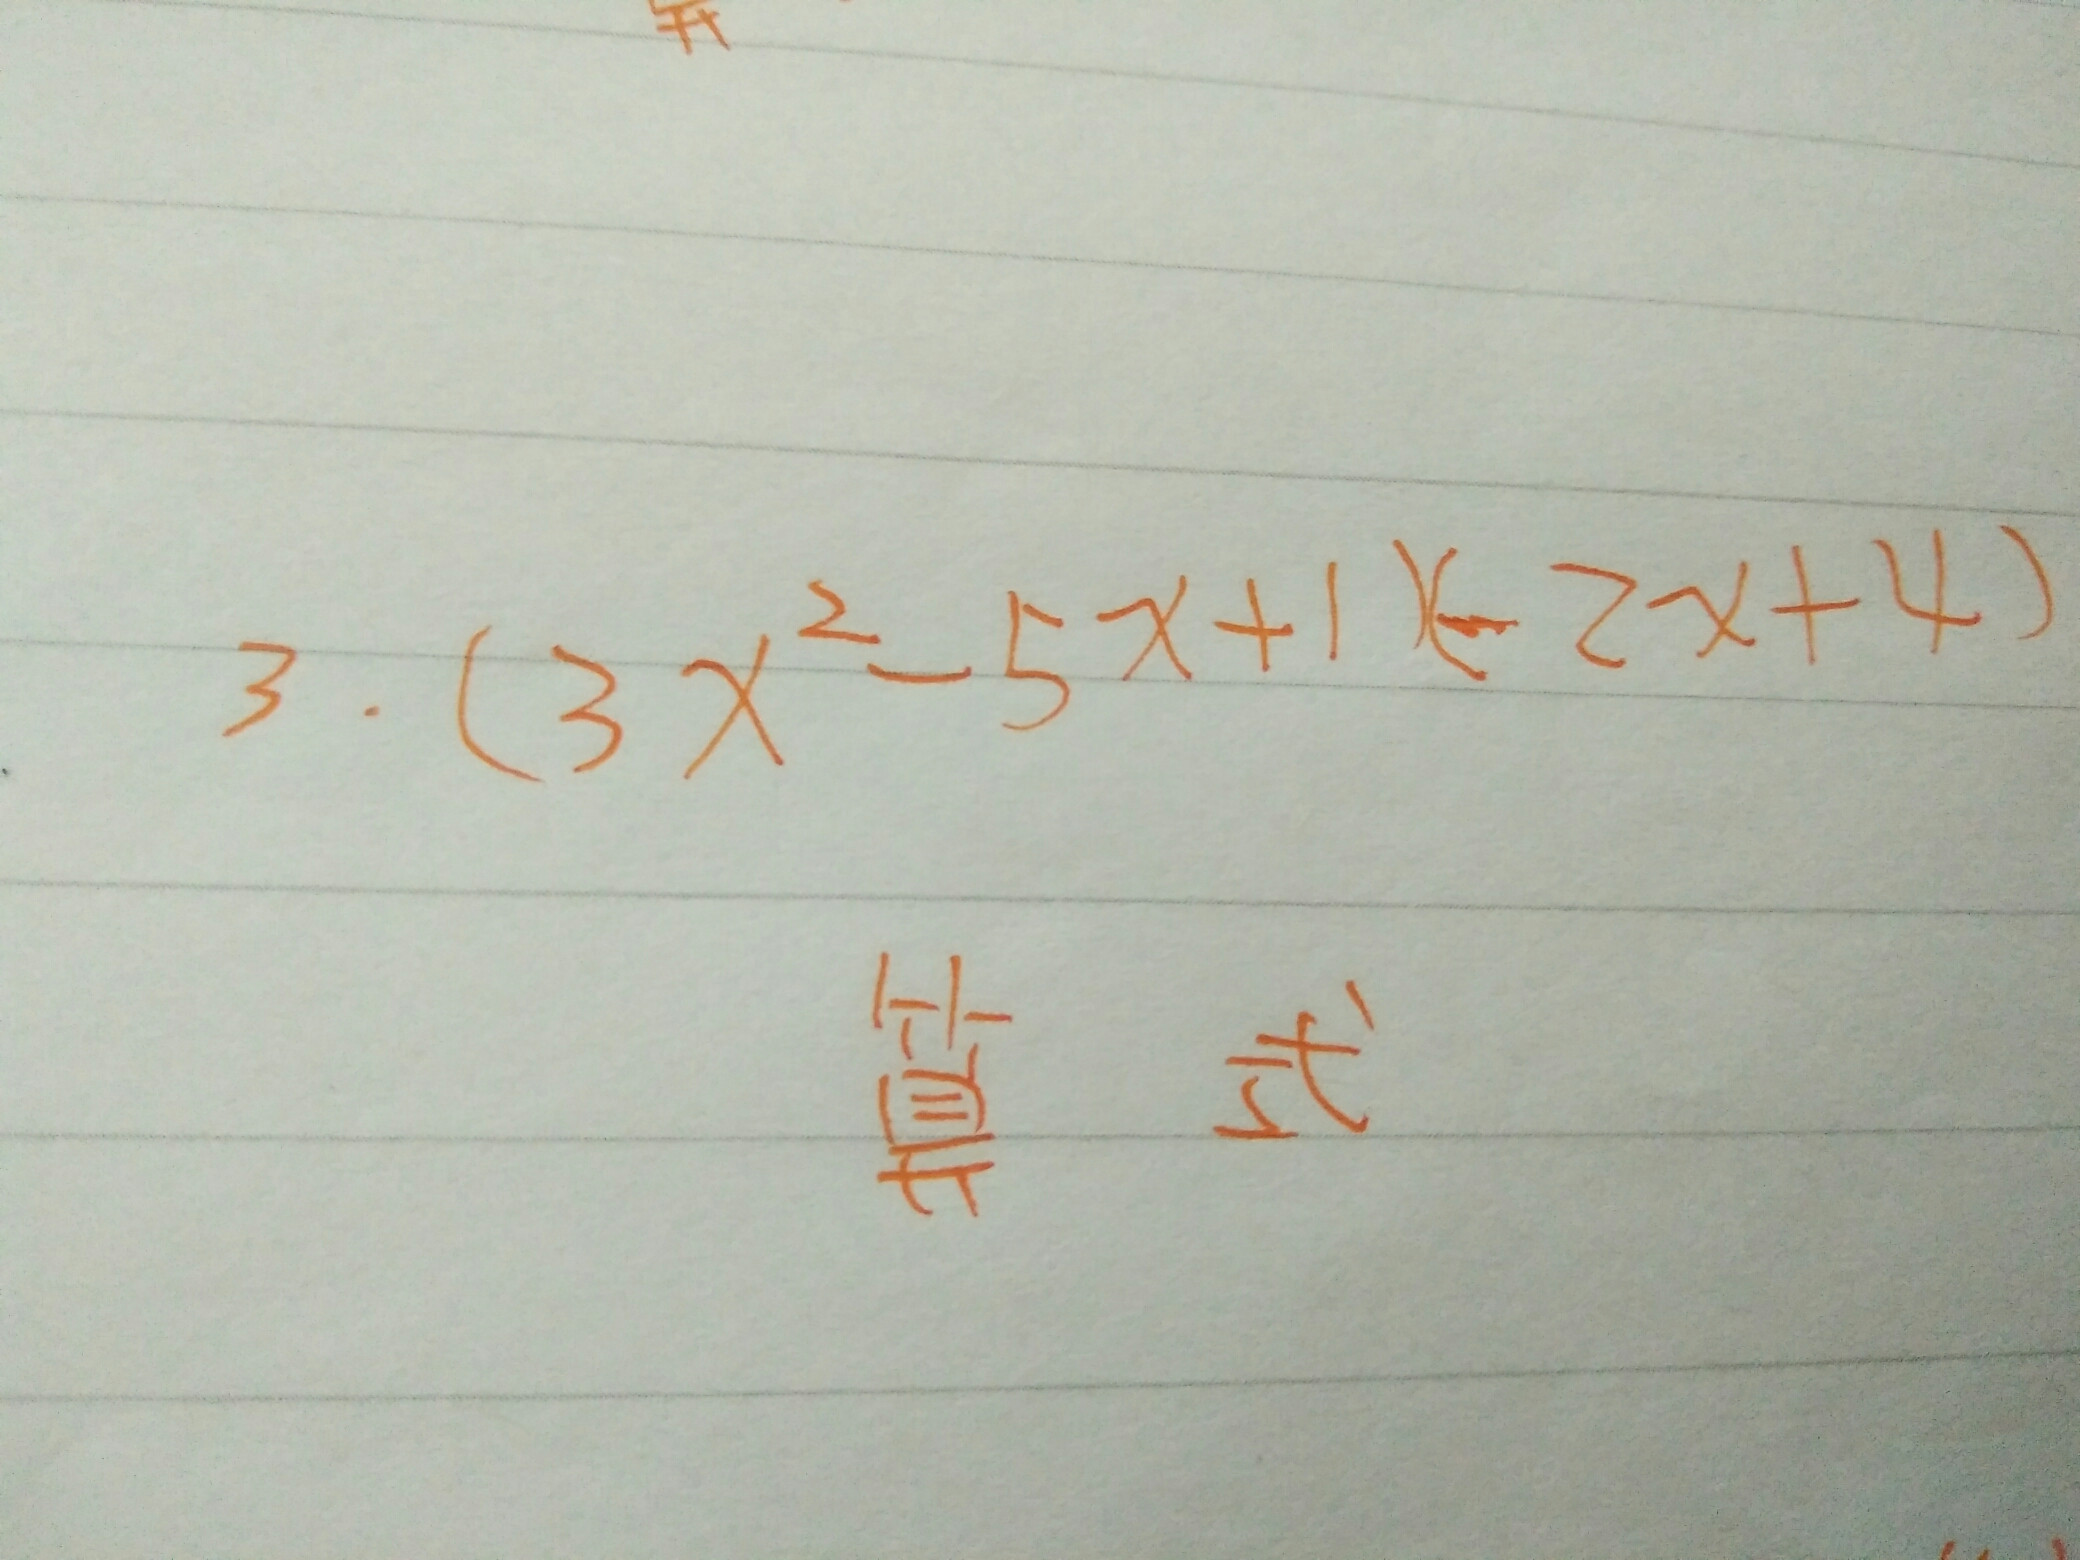 3. (3x²-5x+1)(-2x+4)
算式